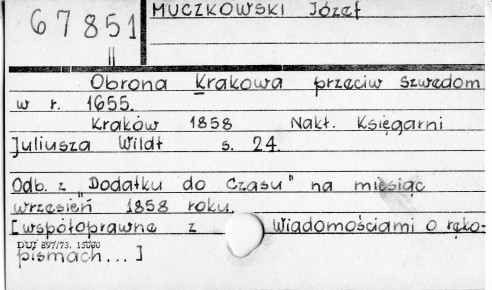 67851
II
MUCZKOWSKI Józef
Obrona Krakowa przeciw Szwedom
w r. 1655.
Kraków 1858 Nakł. Księgarni
Juliusza Wildt s. 24.
Odb. z "Dodatku do Czasu" na miesiąc
wrzesień 1858 roku.
[współoprawne z Wiadomościami o ręko-
DUJ 897/73. 15000
pismach...]